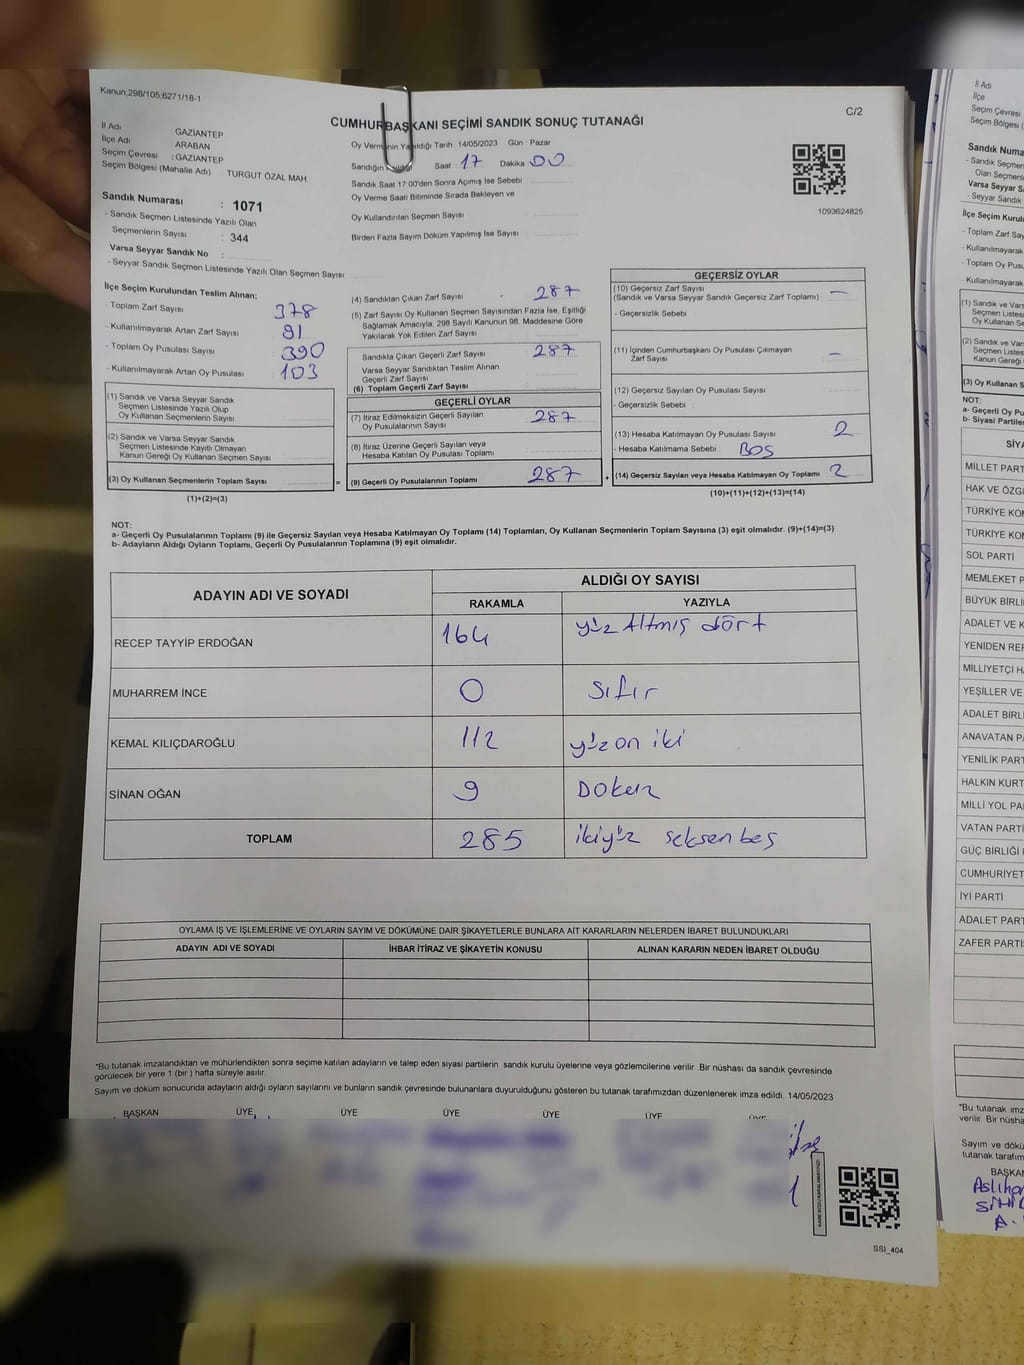 Kanun.298/105;6271/18-1
C/2
CUMHURBAŞKANI SEÇİMİ SANDIK SONUÇ TUTANAĞI
İl Adı : GAZİANTEP
İlçe Adı : ARABAN
Seçim Çevresi : GAZİANTEP
Seçim Bölgesi (Mahalle Adı) TURGUT ÖZAL MAH
Sandık Numarası : 1071
- Sandık Seçmen Listesinde Yazılı Olan
Seçmenlerin Sayısı : 344
Varsa Seyyar Sandık No :
- Seyyar Sandık Seçmen Listesinde Yazılı Olan Seçmen Sayısı
Oy Vermenin Yapıldığı Tarih :14/05/2023 Gün : Pazar
Sandığın Saat 17 Dakika 00
Sandık Saat 17.00'den Sonra Açımış İse Sebebi
Oy Verme Saati Bitiminde Sırada Bekleyen ve
Oy Kullandırılan Seçmen Sayısı
Birden Fazla Sayım Döküm Yapılmış İse Sayısı
1093624825
İlçe Seçim Kurulundan Teslim Alınan;
- Toplam Zarf Sayısı 378
- Kullanılmayarak Artan Zarf Sayısı 91
- Toplam Oy Pusulası Sayısı 390
- Kullanılmayarak Artan Oy Pusulası 103
(1) Sandık ve Varsa Seyyar Sandık
Seçmen Listesinde Yazılı Olup
Oy Kullanan Seçmenlerin Sayısı
(2) Sandık ve Varsa Seyyar Sandık
Seçmen Listesinde Kayıtlı Olmayan
Kanun Gereği Oy Kullanan Seçmen Sayısı
(3) Oy Kullanan Seçmenlerin Toplam Sayısı
=
(1)+(2)=(3)
(4) Sandıktan Çıkan Zarf Sayısı 287
(5) Zarf Sayısı Oy Kullanan Seçmen Sayısından Fazla İse, Eşitliği
Sağlamak Amacıyla; 298 Sayılı Kanunun 98. Maddesine Göre
Yakılarak Yok Edilen Zarf Sayısı
Sandıkta Çıkan Geçerli Zarf Sayısı 287
Varsa Seyyar Sandıktan Teslim Alınan
Geçerli Zarf Sayısı
(6) Toplam Geçerli Zarf Sayısı
GEÇERLİ OYLAR
(7) İtiraz Edilmeksizin Geçerli Sayılan
Oy Pusulalarının Sayısı 287
(8) İtiraz Üzerine Geçerli Sayılan veya
Hesaba Katılan Oy Pusulası Toplamı
(9) Geçerli Oy Pusulalarının Toplamı 287
+
GEÇERSİZ OYLAR
(10) Geçersiz Zarf Sayısı —
(Sandık ve Varsa Seyyar Sandık Geçersiz Zarf Toplamı)
- Geçersizlik Sebebi
(11) İçinden Cumhurbaşkanı Oy Pusulası Çıkmayan
Zarf Sayısı —
(12) Geçersiz Sayılan Oy Pusulası Sayısı
- Geçersizlik Sebebi :
(13) Hesaba Katılmayan Oy Pusulası Sayısı 2
- Hesaba Katılmama Sebebi : BOŞ
(14) Geçersiz Sayılan veya Hesaba Katılmayan Oy Toplamı 2
(10)+(11)+(12)+(13)=(14)
NOT:
a- Geçerli Oy Pusulalarının Toplamı (9) ile Geçersiz Sayılan veya Hesaba Katılmayan Oy Toplamı (14) Toplamları, Oy Kullanan Seçmenlerin Toplam Sayısına (3) eşit olmalıdır. (9)+(14)=(3)
b- Adayların Aldığı Oyların Toplamı, Geçerli Oy Pusulalarının Toplamına (9) eşit olmalıdır.
ADAYIN ADI VE SOYADI
ALDIĞI OY SAYISI
RAKAMLA YAZIYLA
RECEP TAYYİP ERDOĞAN 164 yüz Altmış dört
MUHARREM İNCE 0 sıfır
KEMAL KILIÇDAROĞLU 112 yüz on iki
SİNAN OĞAN 9 Dokuz
TOPLAM 285 ikiyüz seksen beş
OYLAMA İŞ VE İŞLEMLERİNE VE OYLARIN SAYIM VE DÖKÜMÜNE DAİR ŞİKAYETLERLE BUNLARA AİT KARARLARIN NELERDEN İBARET BULUNDUKLARI
ADAYIN ADI VE SOYADI İHBAR İTİRAZ VE ŞİKAYETİN KONUSU ALINAN KARARIN NEDEN İBARET OLDUĞU
"Bu tutanak imzalandıktan ve mühürlendikten sonra seçime katılan adayların ve talep eden siyasi partilerin sandık kurulu üyelerine veya gözlemcilerine verilir. Bir nüshası da sandık çevresinde
görülecek bir yere 1 (bir ) hafta süreyle asılır.
Sayım ve döküm sonucunda adayların aldığı oyların sayılarını ve bunların sandık çevresinde bulunanlara duyurulduğunu gösteren bu tutanak tarafımızdan düzenlenerek imza edildi. 14/05/2023
BAŞKAN ÜYE ÜYE ÜYE ÜYE ÜYE ÜYE
SSİ_404
İl Adı
İlçe
Seçim Çevresi
Seçim Bölgesi (
Sandık Numa
- Sandık Seçmen
Olan Seçmenle
Varsa Seyyar S
- Seyyar Sandık
İlçe Seçim Kurulu
- Toplam Zarf Say
- Kullanılmayarak
- Toplam Oy Pusu
- Kullanılmayarak
(1) Sandık ve Vars
Seçmen Listes
Oy Kullanan S
(2) Sandık ve Vars
Seçmen Listes
Kanun Gereği
(3) Oy Kullanan S
NOT:
a- Geçerli Oy Pu
b- Siyasi Partile
SİYA
MİLLET PART
HAK VE ÖZG
TÜRKİYE KOM
TÜRKİYE KOM
SOL PARTİ
MEMLEKET P
BÜYÜK BİRLİ
ADALET VE K
YENİDEN REF
MİLLİYETÇİ H
YEŞİLLER VE
ADALET BİRLİ
ANAVATAN P
YENİLİK PART
HALKIN KURT
MİLLİ YOL PA
VATAN PARTİ
GÜÇ BİRLİĞİ
CUMHURİYET
İYİ PARTİ
ADALET PART
ZAFER PARTİS
"Bu tutanak imz
verilir. Bir nüsha
Sayım ve dökü
tutanak tarafım
BAŞKAN